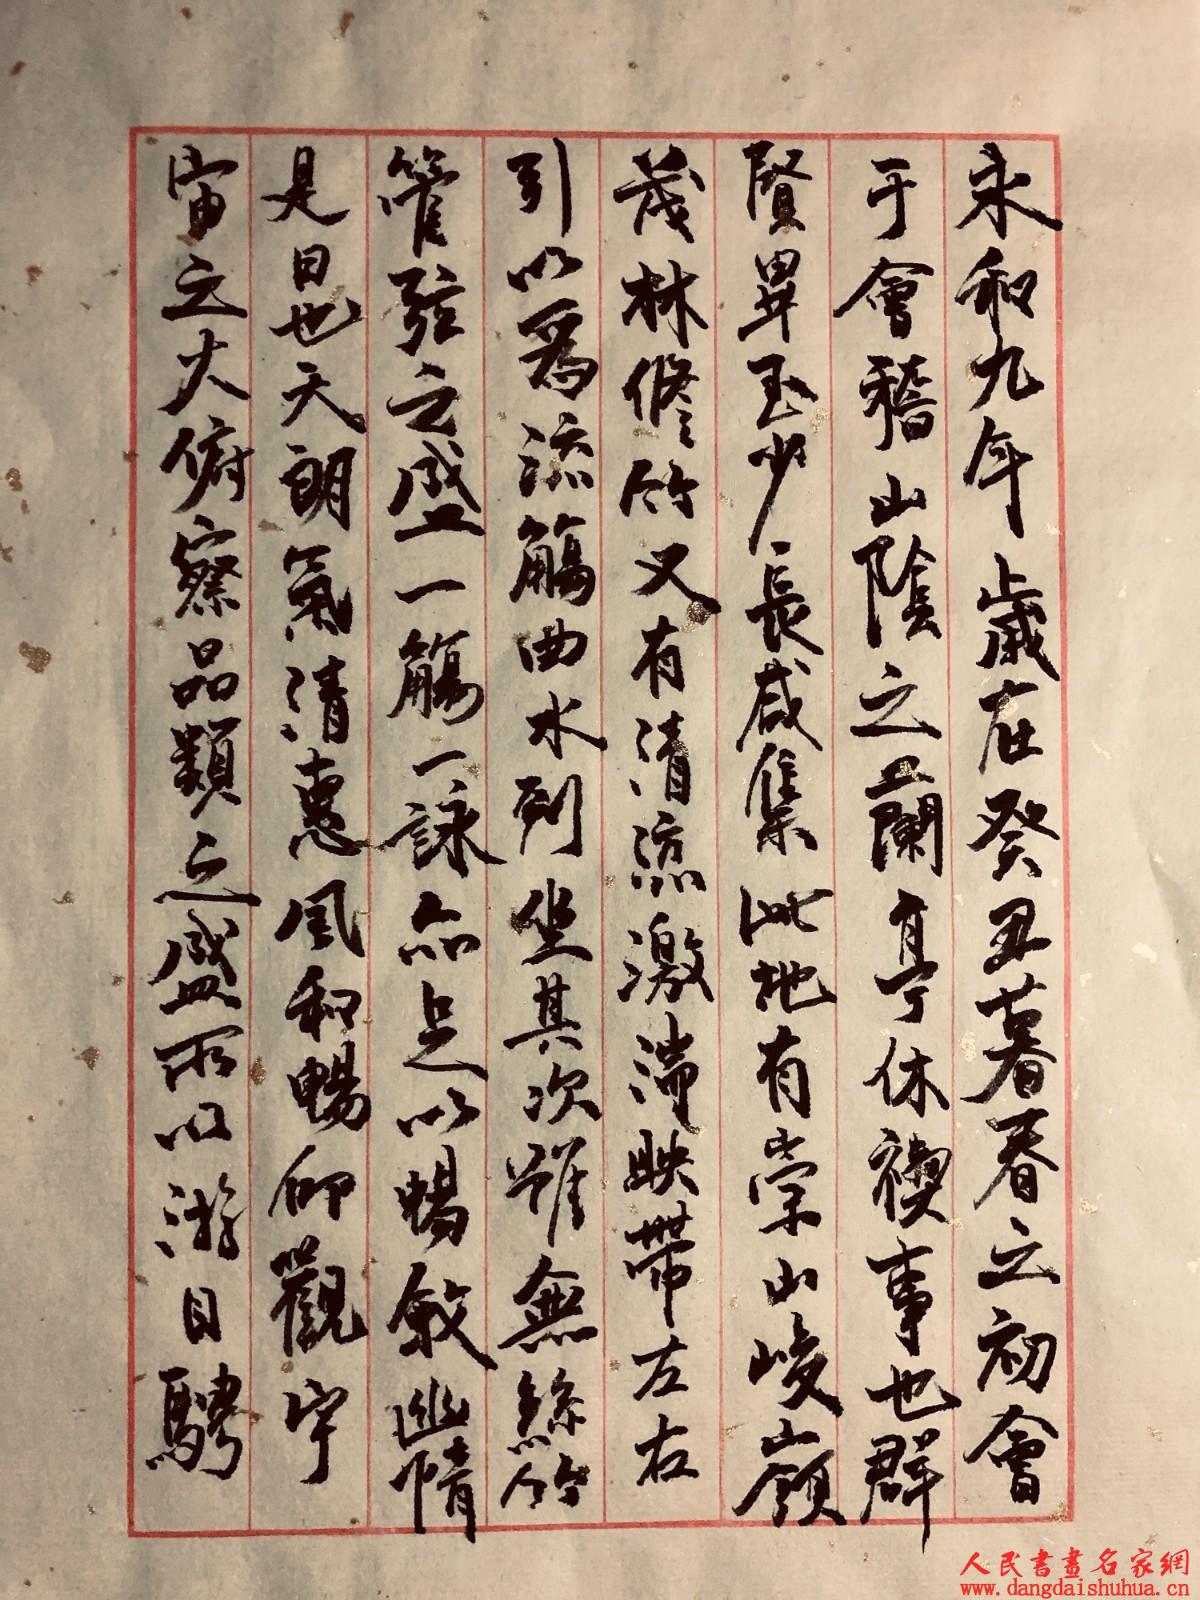 永和九年歲在癸丑暮春之初會
于會稽山陰之蘭亭脩禊事也群
賢畢至少長咸集此地有崇山峻嶺
茂林脩竹又有清流激湍映帶左右
引以為流觴曲水列坐其次雖無絲竹
管弦之盛一觴一詠亦足以暢敘幽情
是日也天朗氣清惠風和暢仰觀宇
宙之大俯察品類之盛所以遊目騁
人民書畫名家網
www.dangdaishuhua.cn